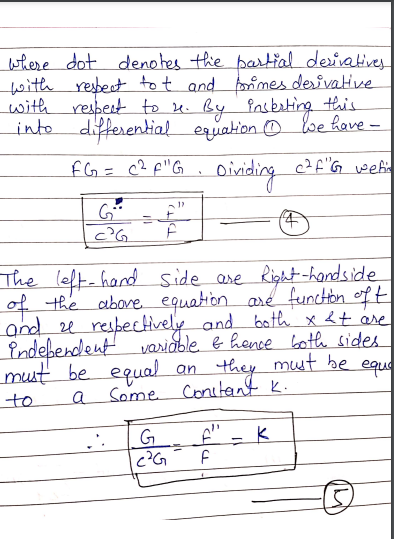 where dot denotes the partial derivatives
with respect to t and primes derivative
with respect to x. By inserting this
into differential equation ① we have –
FG = c² F"G . Dividing c²F"G we
G̈/c²G = F"/F —— ④
The left-hand side are Right-handside
of the above equation are function of t
and x respectively and both x & t are
independent variable & hence both sides
must be equal an they must be equ
to a some constant K.
∴ G/c²G = F"/F = K
—— ⑤